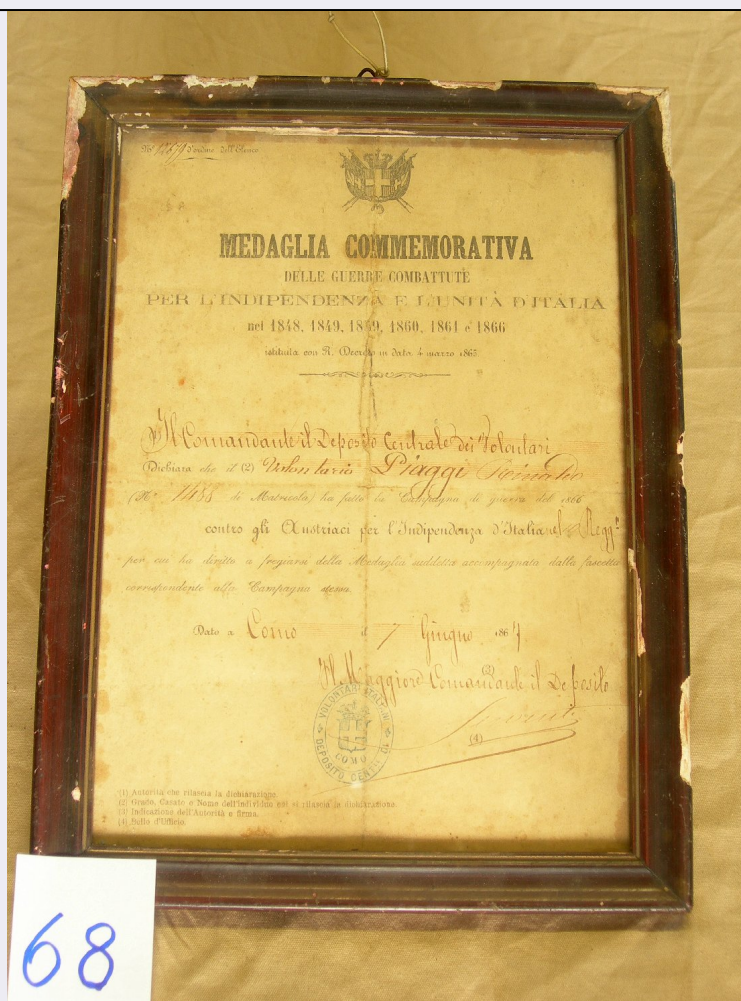 N° 12679 d'ordine dell'Elenco
MEDAGLIA COMMEMORATIVA
DELLE GUERRE COMBATTUTE
PER L'INDIPENDENZA E L'UNITÀ D'ITALIA
nel 1848, 1849, 1859, 1860, 1861 e 1866
istituita con R. Decreto in data 4 marzo 1865
Il Comandante il Deposito Centrale dei Volontari
Dichiara che il (2) Volontario Piaggi
(N° 1488 di Matricola) ha fatto la Campagna di guerra del 1866
contro gli Austriaci per l'Indipendenza d'Italia nel Regg.to
per cui ha diritto a fregiarsi della Medaglia suddetta accompagnata dalla fascetta
corrispondente alla Campagna stessa.
Dato a Como il 7 Giugno 1867
Il Maggiore Comandante il Deposito
(4)
VOLONTARI ITALIANI
COMO
DEPOSITO CENTLE DI
(1) Autorità che rilascia la dichiarazione.
(2) Grado, Casato e Nome dell'individuo cui si rilascia la dichiarazione.
(3) Indicazione dell'Autorità e firma.
(4) Bollo d'Ufficio.
68